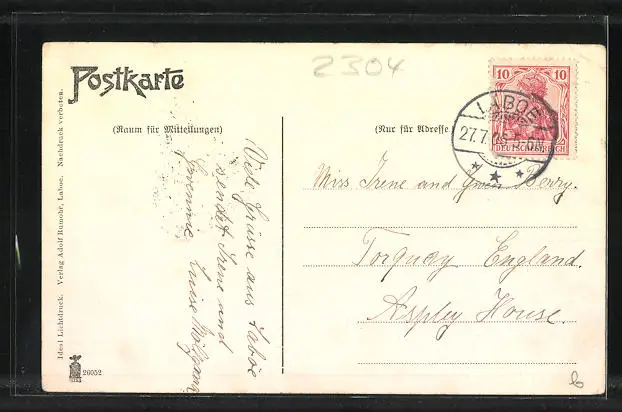 Postkarte
2304
(Raum für Mitteilungen)
(Nur für Adresse.
10 10
DEUTSCHES REICH
LABOE
27.7.
Miss Irene and Berry.
Torquay England.
Aspley House.
Viele Grüsse aus Laboe
sendet Irene und
Luise
Ideal Lichtdruck. Verlag Adolf Rumohr, Laboe. Nachdruck verboten.
26052
b